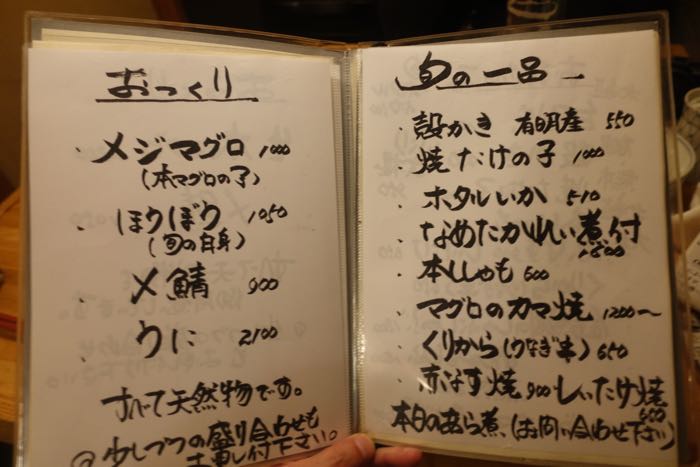 おつくり
・メジマグロ 1000
(本マグロの子)
・ほうぼう 1050
(旬の白身)
・〆鯖 900
・うに 2100
すべて天然物です。
◎少しづつの盛り合わせも
お申し付下さい。
旬の一品
・殻かき 有明産 550
・焼たけの子 1000
・ホタルいか 510
・なめたかれい煮付
1800
・本ししゃも 600
・マグロのカマ焼 1200〜
・くりから(うなぎ串) 650
・赤なす焼 900 しいたけ焼
600
本日のあら煮、(お問い合わせ下さい)